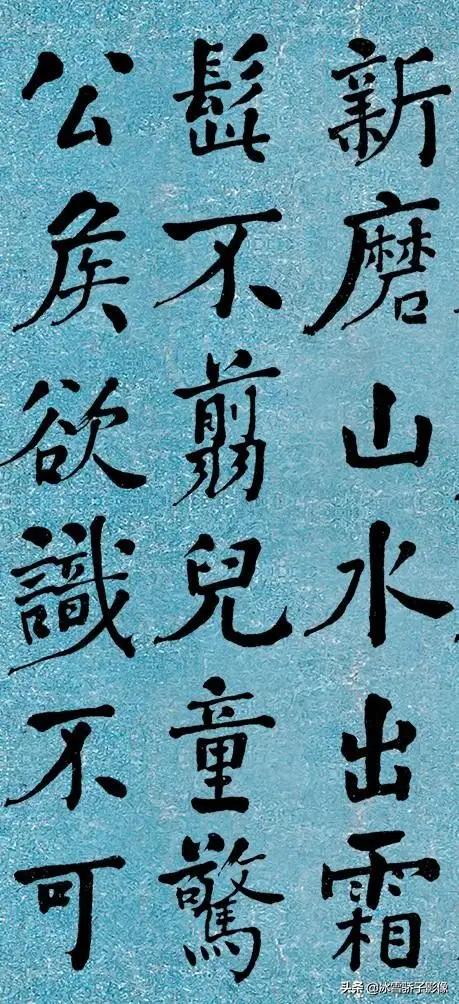 新磨山水出霜
髭不翦兒童驚
公矦欲識不可
头条 @冰雪骄子影像